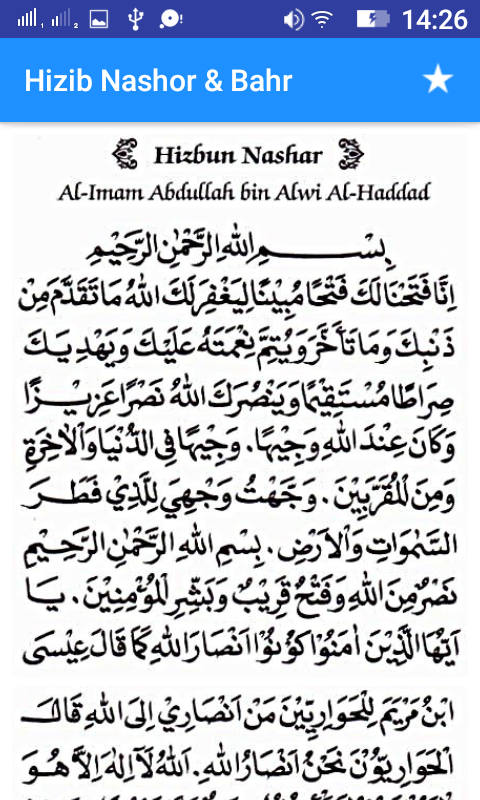 14:26
Hizib Nashor & Bahr
Hizbun Nashar
Al-Imam Abdullah bin Alwi Al-Haddad
بِسْــــمِ اللهِ الرَّحْمٰنِ الرَّحِيْمِ
اِنَّا فَتَحْنَا لَكَ فَتْحًا مُبِيْنًا لِيَغْفِرَ لَكَ اللهُ مَا تَقَدَّمَ مِنْ
ذَنْبِكَ وَمَا تَأَخَّرَ وَيُتِمَّ نِعْمَتَهُ عَلَيْكَ وَيَهْدِيَكَ
صِرَاطًا مُسْتَقِيْمًا وَيَنْصُرَكَ اللهُ نَصْرًا عَزِيْزًا
وَكَانَ عِنْدَ اللهِ وَجِيْهًا. وَجِيْهًا فِى الدُّنْيَا وَاْلاٰخِرَةِ
وَمِنَ الْمُقَرَّبِيْنَ. وَجَّهْتُ وَجْهِيَ لِلَّذِيْ فَطَرَ
السَّمٰوَاتِ وَاْلاَرْضِ. بِسْمِ اللهِ الرَّحْمٰنِ الرَّحِيْمِ
نَصْرٌ مِنَ اللهِ وَفَتْحٌ قَرِيْبٌ وَبَشِّرِ الْمُؤْمِنِيْنَ. يَا
اَيُّهَا الَّذِيْنَ اٰمَنُوْا كُوْنُوْا اَنْصَارَ اللهِ كَمَا قَالَ عِيْسَى
ابْنُ مَرْيَمَ لِلْحَوَارِيِّيْنَ مَنْ اَنْصَارِيْ اِلَى اللهِ قَالَ
الْحَوَارِيُّوْنَ نَحْنُ اَنْصَارُ اللهِ. اَللهُ لَآ اِلٰهَ اِلاَّ هُوَ